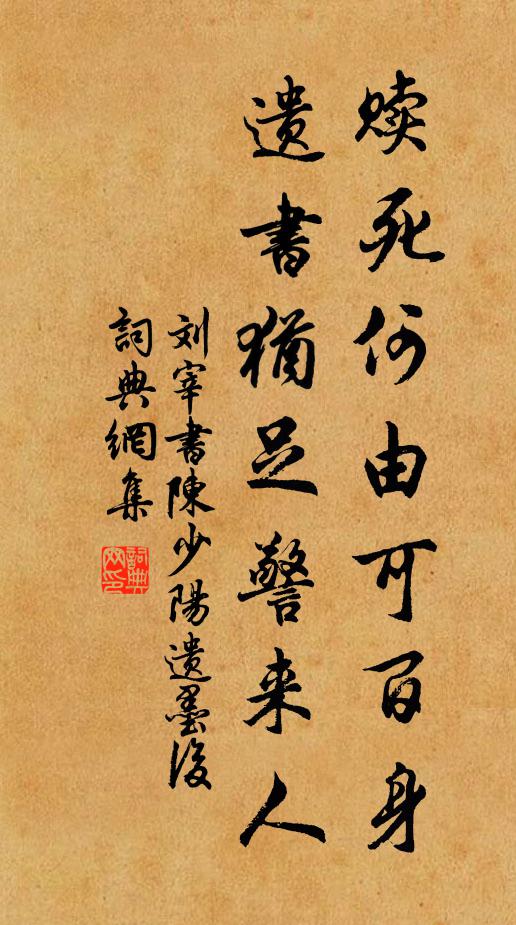 赎死何由可百身
遺書猶足警来人
刘宰書陳少陽遺墨後
詞典網集
詞典
网印